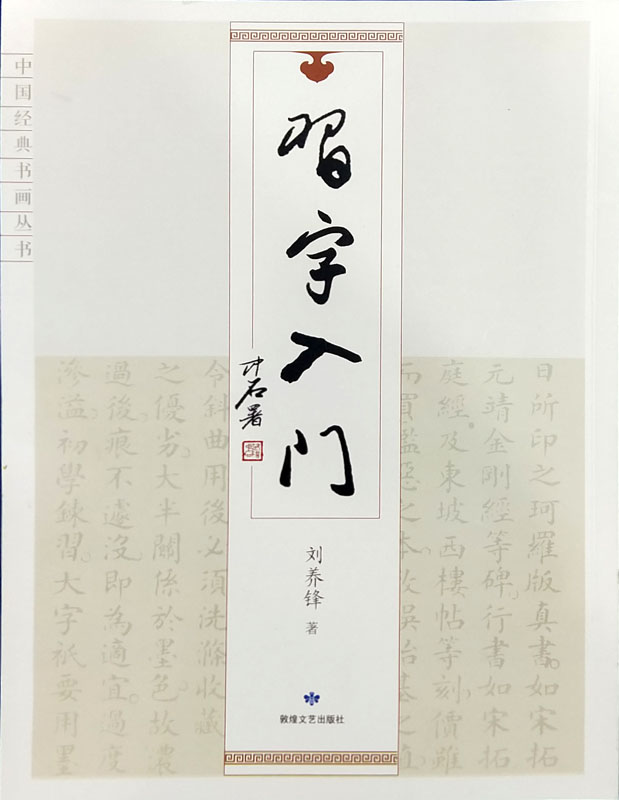 中国经典书画丛书
習字入门
刘养锋 著
敦煌文艺出版社
日所印之珂羅版真書。如宋拓
元靖金剛經等碑。行書如宋拓
庭經。及東坡西樓帖等刻。價雖
令斜曲用後必須洗滌收藏
之優劣。大半關係於墨色故濃
過後痕不遽沒。即為適宜。過度
滲滥初學鍊習。大字祇要用墨